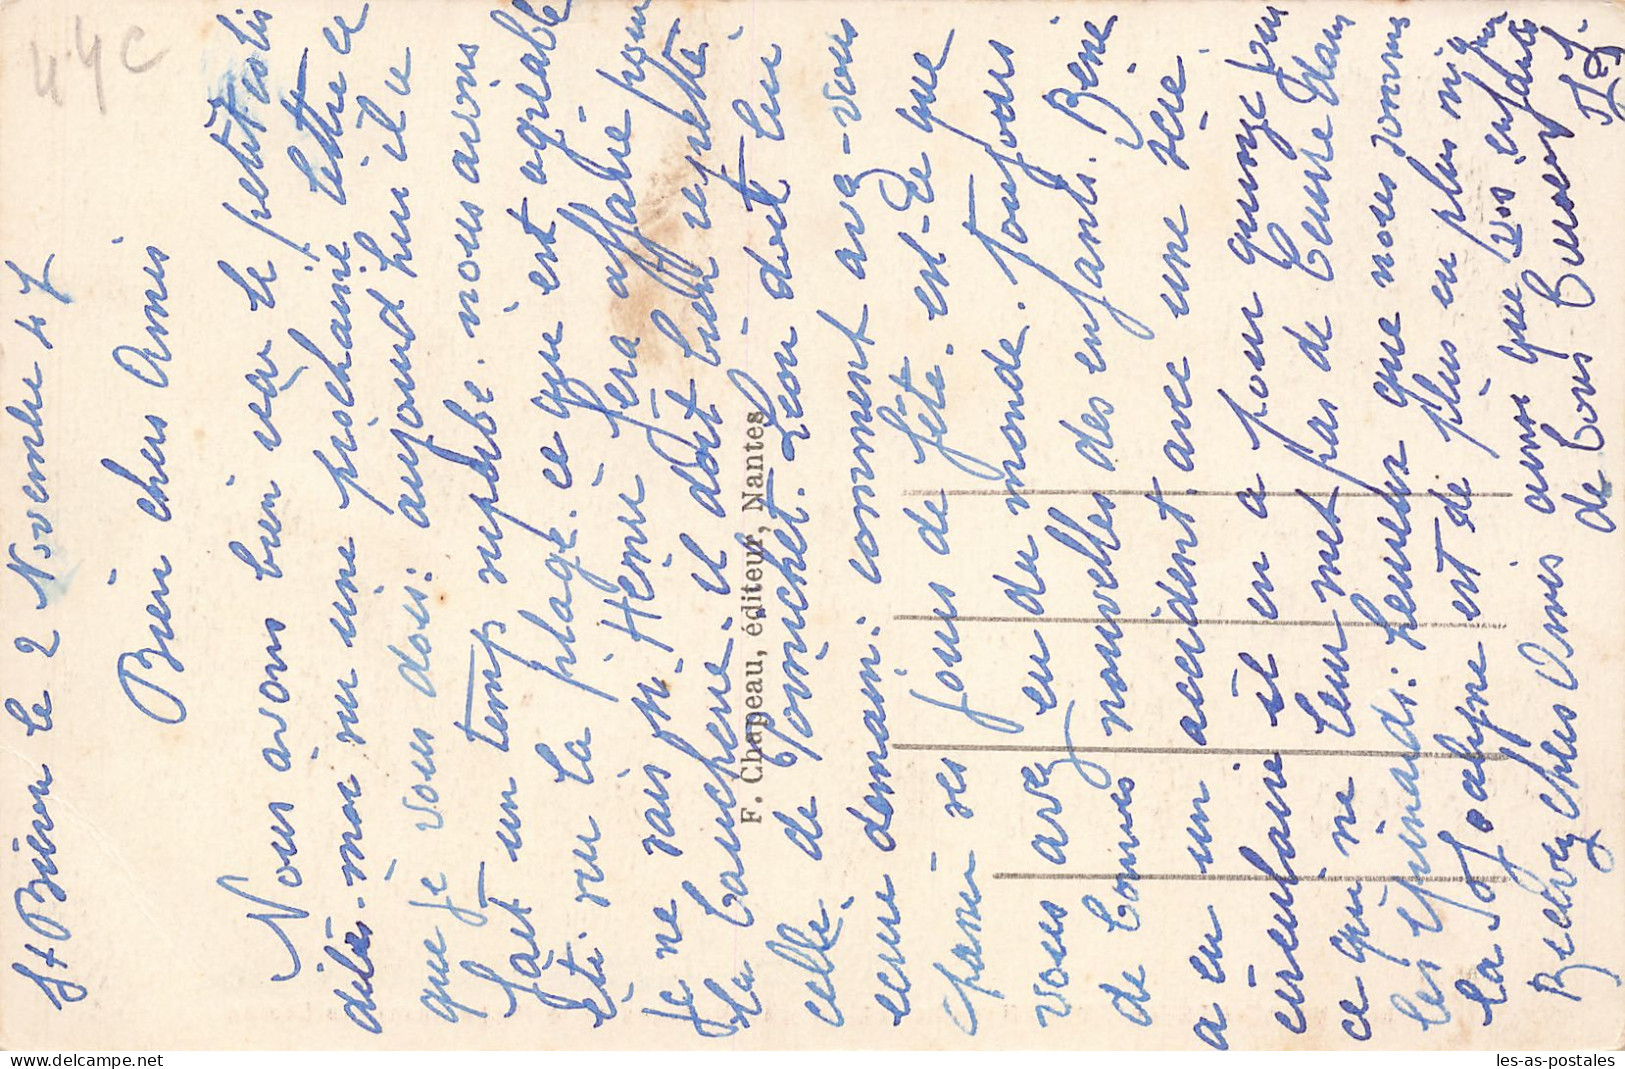 44C
St Brévin le 2 Novembre 47
Bien chers Amis
Nous avons bien reçu le petit colis
dites-moi sur une prochaine lettre ce
que je vous dois: aujourd'hui il a
fait un temps superbe. nous avons
été sur la plage. ce qui est agréable
je ne sais Mr Henri fera affaire pour
la boucherie. il doit bien regretté
celle de Pornichet. Léon doit lui
écrire demain: comment avez-vous
passer ses jours de fête. est-ce que
vous avez eu du monde. toujours
de bonnes nouvelles des enfants. René
a eu un accident avec une
circulaire il en a pour quinze jours
ce qui ne leur met pas de beurre dans
les épinards: heureux que nous sommes
la est de plus en plus
Recevez chers Amis ainsi que vos enfants
de bons baisers
F. Chapeau, éditeur, Nantes
les-as-postales